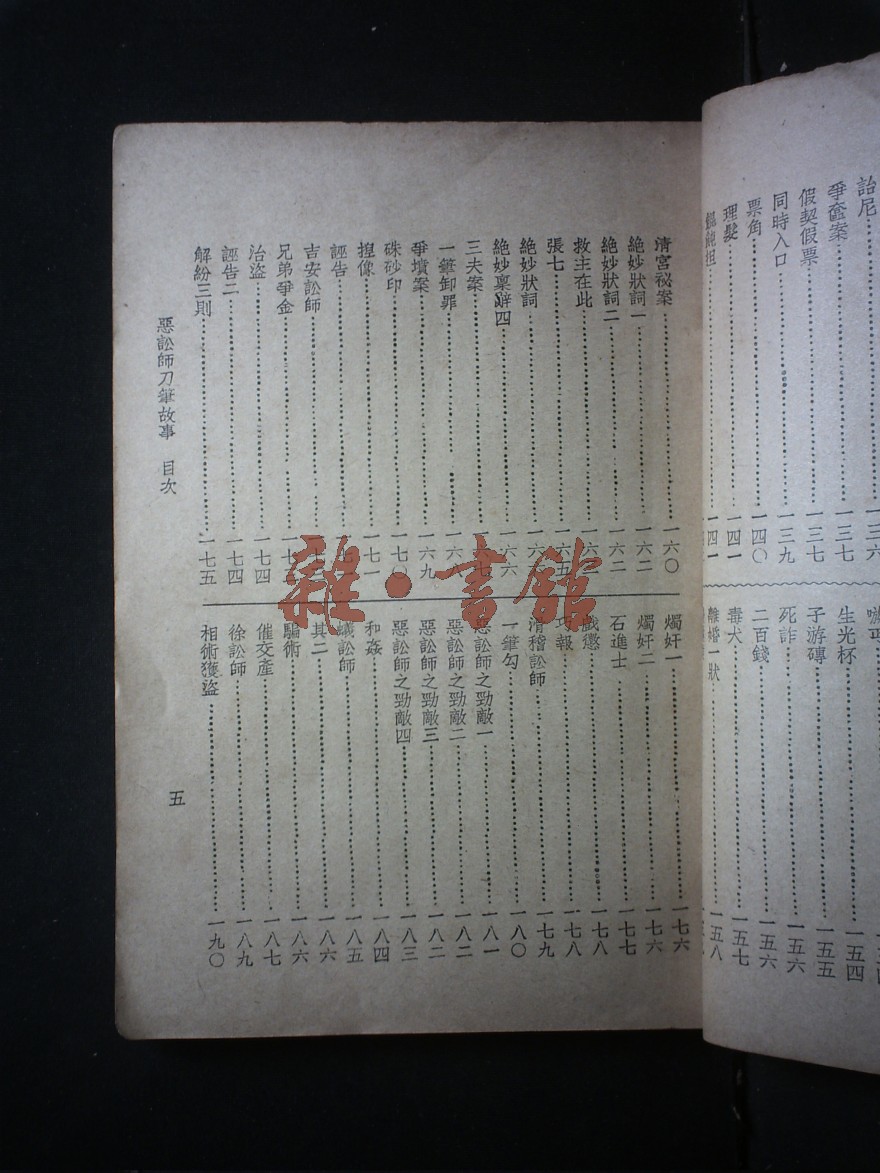 詒尼 一三六
爭奩案 一三七
假契假票 一三七
同時入口 一三九
票角 一四〇
理髮 一四一
一四一
生光杯 一五四
子游磚 一五五
死詐 一五六
二百錢 一五六
毒犬 一五七
離婚一狀 一五八
清宮祕案 一六〇
絶妙狀詞一 一六二
絶妙狀詞二 一六二
救主在此 一六
張七 一六五
絶妙狀詞 一六
絶妙稟辭四 一六六
三夫案 一六七
一筆卸罪 一六八
爭墳案 一六九
硃砂印 一七〇
揑像 一七一
誣告 一七
吉安訟師 一七
兄弟爭金 一七
治盜 一七四
誣告二 一七四
解紛三則 一七五
燭奸一 一七六
燭奸二 一七六
石進士 一七七
戲懲 一七八
巧報 一七八
滑稽訟師 一七九
一筆勾 一八〇
惡訟師之勁敵一 一八一
惡訟師之勁敵二 一八二
惡訟師之勁敵三 一八二
惡訟師之勁敵四 一八三
和姦 一八四
蟻訟師 一八五
其二 一八六
騙術 一八六
催交產 一八七
徐訟師 一八九
相術獲盜 一九〇
惡訟師刀筆故事 目次
五
雜·書館